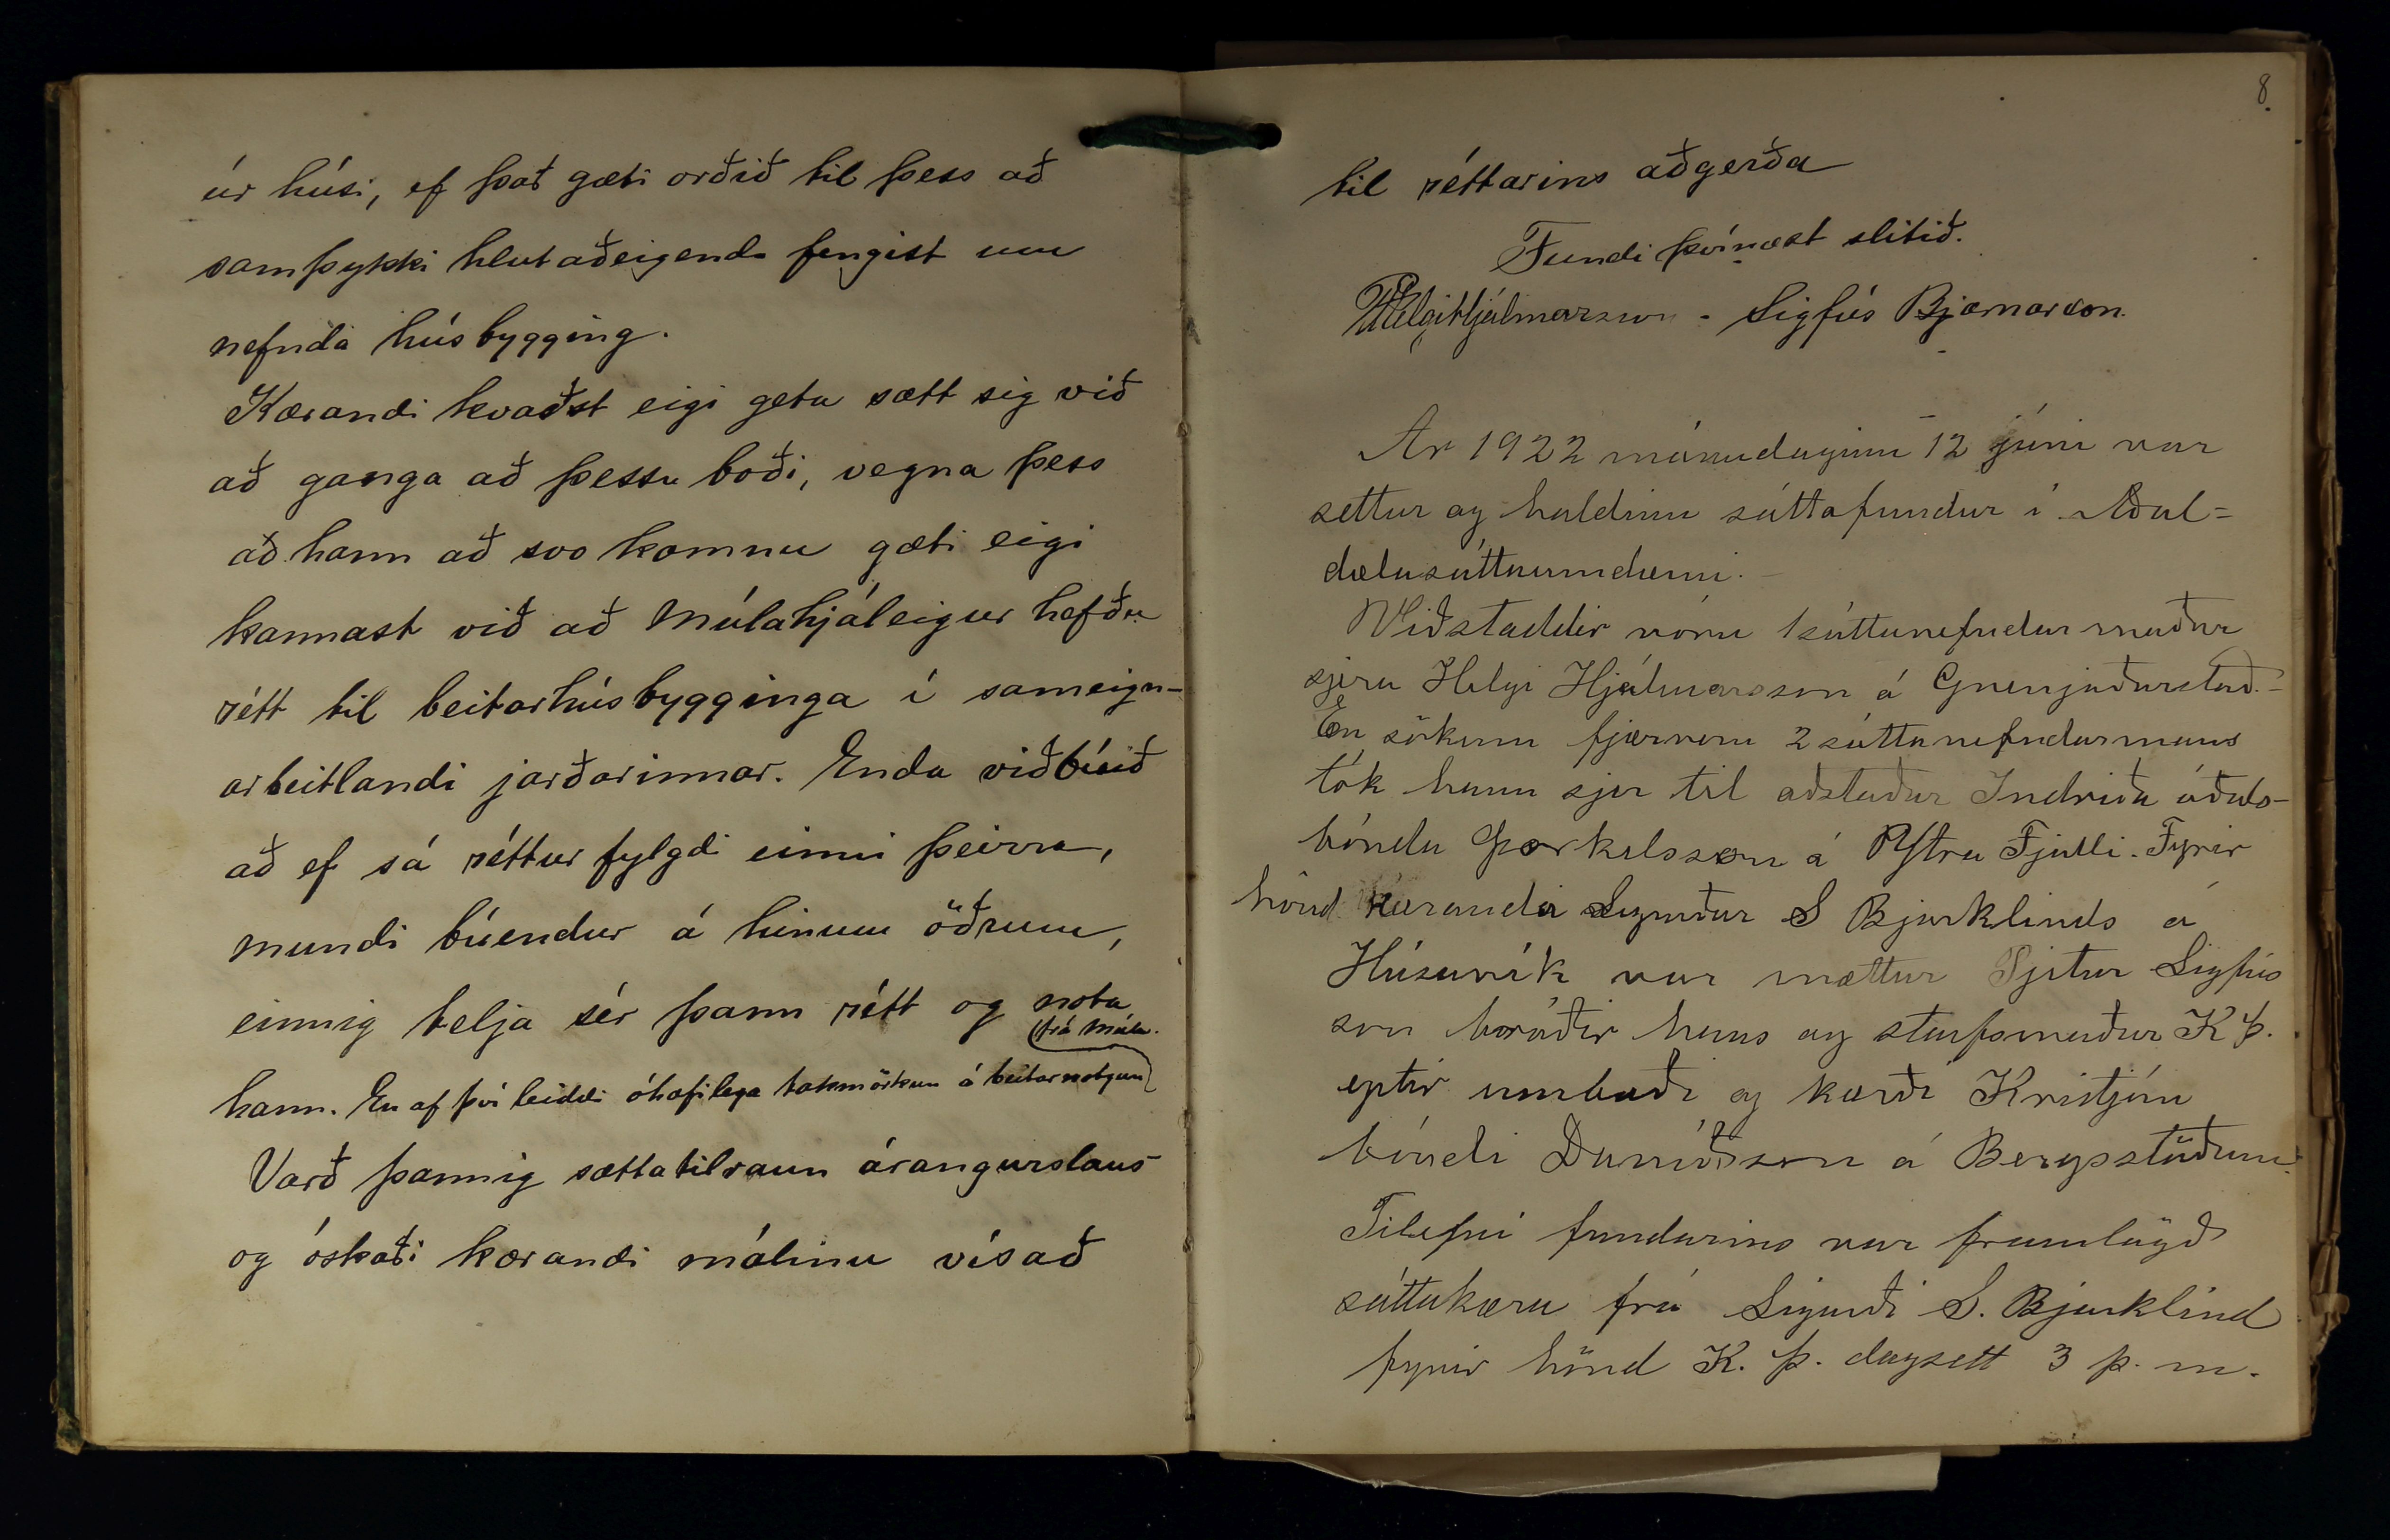 úr húsi, ef það gæti orðið til þess að
samþykki hlutaðeigenda fengist um
nefnda húsbygging.
Kærandi kvaðst eigi geta sætt sig við
að ganga að þessu boði, vegna þess
að hann að svo komnu gæti eigi
kannast við að Múlahjáleigur hefðu
rétt til beitarhúsbygginga í sameign-
arbeitlandi jarðarinnar. Enda viðbúið
að ef sá réttur fylgdi einni þeirra,
mundi búendur á hinum öðrum,
einnig telja sér þann rétt og nota
frá Múla.
hann. En af því leiddi óhæfilega takmörkun á beitarnotjun
Varð þannig sættatilraun árangurslaus
og óskaði kærandi málinu vísað
8.
til réttarins aðgerða
Fundi þvínæst slitið.
Helgi Hjálmarsson - Sigfús Bjarnarson.
Ár 1922 mánudaginn 12 júni var
settur og haldinn sáttafundur í Aðal=
dælasáttaumdæmi.
Viðstaddir vóru 1 sáttanefndar maður
sjera Helgi Hjálmarsson á Grenjaðarstað.-
En sökum fjærveru 2 sáttanefndarmans
tók hann sjer til aðstaðar Indriða óðals-
bónda Þorkelsson á Ytra Fjalli. Fyrir
hönd kæranda Sigurðar S Bjarklinds á
Húsavík var mættur Pjetur Sigfús
son bróðir hans og starfsmaður K Þ.
eptir umboði og kærði Kristján
bóndi Davíðsson á Bergsstöðum.
Tilefni fundarins var framlögð
sáttakæra frá Sigurði S. Bjarklind
fyrir hönd K. Þ. dagsett 3 þ. m.